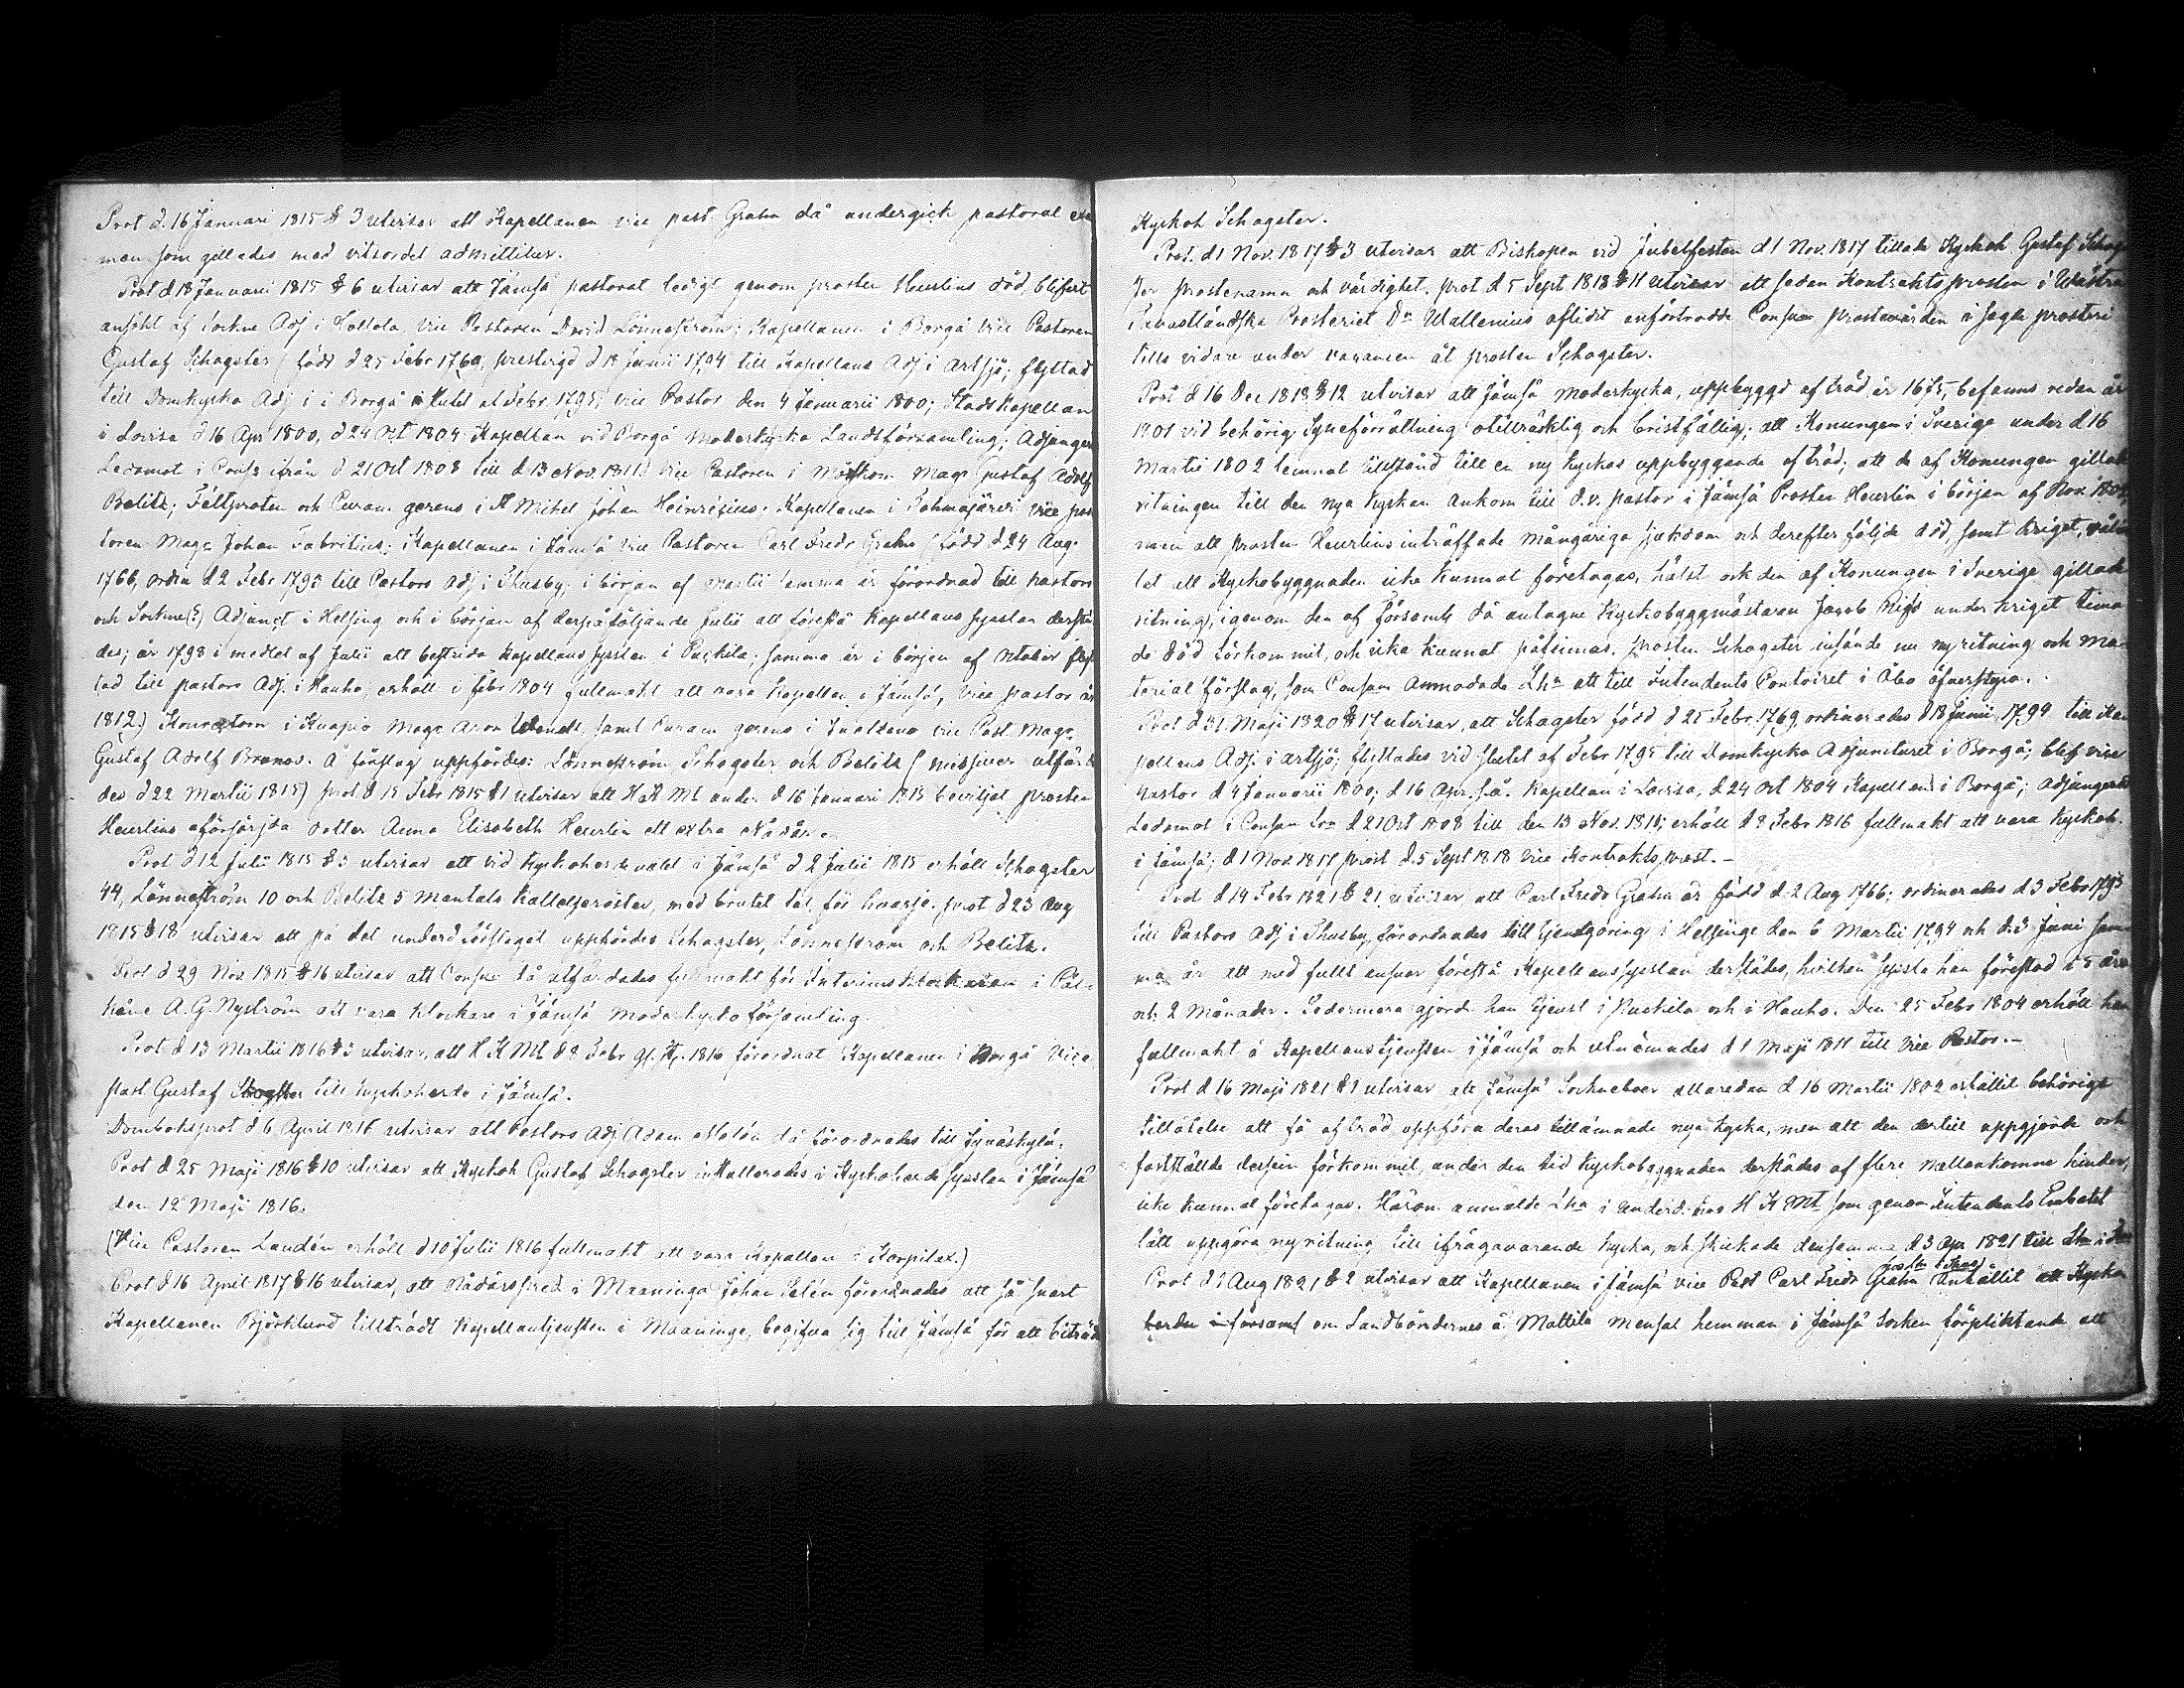 Prot d. 16 Januari 1815 § 3 utvisar att Kapellanen vice past. Grahn då undergick pastoral exa
men som gillades med vitsordet admittitur.
Prot d 18 Januarii 1815 § 6 utvisar att Jämsä pastorat ledigt genom prosten Heurlins död, blifvit
ansökt af Sockne Adj i Hollola vice Pastoren David Lönneström; Kapellanen i Borgå vice Pastoren
Gustaf Schogster (född d 25 Febr 1769, prestvigd d 18 Junii 1794 till Kapellans Adj i Artsjö; flyttad
till Domkyrko Adj i Borgå i slutet af Febr. 1795; vice Pastor den 4 Januarii 1800; Stadskapellan
i Lovisa d 16 Apr 1800, d 24 Oct 1804 Kapellan vid Borgå moderkyrka Landsförsamling; Adjungerad
Ledamot i Cons: ifrån d 21 Oct 1808 till d 13 Nov. 1811) vice Pastoren i Mag: Gustaf Adolf
Belitz; Fältprosten och Curam gerens i St Michel Johan Heinricius; Kapellanen i Tohmajärvi vice pas
toren Mag: Johan Fabritius; Kapellanen i Jämsä vice Pastoren Carl Fredr Grahn (född d 24 Aug.
1766, ordin d 2 Febr 1793 till Pastors adj i Thusby; i början af Martii samma år förordnad till pastors
och Sockne(?) Adjunct i Helsing och i början af derpåföljande Julii att förestå Kapellans sysslan derstä
des; år 1798 i medlet af Julii att bestrida Kapellans sysslan i Puckila; samma år i början af October flyt
tad till pastors Adj. i Hauho, erhöll i febr 1804 fullmakt att vara Kapellan i Jämsä, vice pastor år
1812.) Conrectorn i Kuopio Mag: Aron samt Curam gerens i vice Past. Mag:
Gustaf Adolf Branov. Å förslag uppfördes: Lönneström, Schogster och Belitz (missiver utfärda
des d 22 Martii 1815) prot d 15 Febr 1815 § 1 utvisar att H K Mt under d 16 Januari 1815 beviljat prosten
Heurlins oförsörjda dotter Anna Elisabeth Heurlin ett extra Nådår.
Prot d 12 Julii 1815 § 3 utvisar att vid Kyrkoherde valet i Jämsä d 2 Julii 1815 erhöll Schogster
44, Lönneström 10 och Belitz 5 mantals kallelseröster, med brutet tal för hvarje. prot d 23 Aug
1815 § 18 utvisar att på det underd: förslaget uppfördes Schogster, Lönneström och Belitz.
Prot d 29 Nov 1815 § 16 utvisar att Cons: då utfärdades fullmakt för Interims klockaren i Päl-
käne A. G. Nyström att vara klockare i Jämsä moderkyrko församling.
Prot d 13 Martii 1816 § 3 utvisar, att H K Mt d 8 Febr 1816 förordnat Kapellanen i Borgå Vice
past Gustaf Schogster till kyrkoherde i Jämsä.
Domboksprot d 6 April 1816 utvisar att Pastors Adj Adam Molén då förordnades till Jyväskylä.
Prot d 25 Maji 1816 § 10 utvisar att Kyrkoh Gustaf Schogster installerades i Kyrkoherde sysslan i Jämsä
den 12 Maji 1816.
(Vice Pastoren Landén erhöll d 10 Julii 1816 fullmakt att vara Kapellan i Korpilax.)
Prot d 16 April 1817 § 16 utvisar, att Nådårspred. i Maaninga Johan Salén förordnades att så snart
Kapellanen Björklund tillträdt Kapellantjensten i Maaninga, begifva sig till Jämsä för att biträda
Kyrkoh Schogster.
Prot. d 1 Nov. 1817 § 3 utvisar att Biskopen vid Jubelfesten d 1 Nov. 1817 tillade Kyrkoh Gustaf Schog
ster prostenamn och värdighet. prot d 5 Sept 1818 § 11 utvisar att sedan Kontraktsprosten i Västra
Tavastländska Prosteriet Dr Wallenius aflidit anförtrodde Cons: prostevården i sagde prosteri
tills vidare under vacansen åt prosten Schogster.
Prot d 16 Dec 1818 § 12 utvisar att Jämsä moderkyrka, uppbyggd af träd, år 1675, befanns redan år
1801 vid behörig Syneförrättning otillräcklig och bristfällig; att Konungen i Sverige under d 16
Martii 1802 lemnat tillstånd till en ny kyrkas uppbyggande af träd; att de af Konungen gillade
ritningen till den nya kyrkan ankom till d.v. pastor i Jämsä Prosten Heurlin i början af Nov. 1804
men att prosten Heurlins inträffade mångåriga sjukdom och derefter följde död, samt kriget, vållat
let att Kyrkobyggnaden icke kunnat företagas, hälst ock den af Konungen i Sverige gillade
ritning, igenom den af församl: då antagne Kyrkobyggmästaren Jacob Rijfs under kriget tima
de död förkommit, och icke kunnat påfinnas. Prosten Schogster insände nu ny ritning och Ma-
terial förslag, som Cons: anmodade Lh: att till Intendents Contoiret i Åbo öfverstyra.
Prot d 31 Maji 1820 § 17 utvisar, att Schogster född d 25 Febr. 1769, ordinerades d 18 Junii 1794 till Ka
pellans Adj. i Artsjö; flyttades vid slutet af Febr 1795 till Domkyrko Adjuncturet i Borgå; blef vice
pastor d 4 Januarii 1800; d 16 Apr. s.å. Kapellan i Lovisa, d 24 Oct 1804 Kapellan i Borgå; adjungerad
Ledamot i Cons: fr: d 21 Oct 1808 till den 13 Nov. 1811; erhöll d 8 Febr 1816 fullmakt att vara Kyrkoh.
i Jämsä; d 1 Nov. 1817 prost d. 5 Sept 1818 vice Kontrakts prost.-
Prot d 14 Febr 1821 § 21 utvisar att Carl Fredr Grahn är född d. 2 Aug 1766; ordinerades d 3 Febr 1793
till Pastors Adj i Thusby, förordnades till tjenstgöring i Helsinge den 6 Martii 1794 och d. 3 Juni sam
ma år att med fullt ansvar förestå Kapellanssysslan derstädes, hvilken syssla han förestod i 5 års
och 2 Månader. Sedermera gjorde han tjenst i Puckila och i Hauho. Den 25 Febr 1804 erhöll han
fullmakt å Kapellanstjensten i Jämsä och utnämndes d 1 Maji 1811 till Vice Pastor.-
Prot d 16 Maji 1821 § 1 utvisar att Jämsä Sockneboer allaredan d 16 Martii 1802 erhållit behörigt
tillåtelse att få af träd uppföra deras tillämnade nya kyrka, men att den dertill uppgjorde och
fastställde dessein förkommit, under den tid kyrkobyggnaden derstädes af flere mellankomne hinder
icke kunnat företagas. Härom anmälde Lh: i underd: hos H K Mt som genom Intendents Embetet
lått uppgöra ny ritning till ifrågavarande kyrka, och skickade densamma d 3 Apr 1821 till
Prot d 1 Aug 1821 § 2 utvisar att Kapellanen i Jämsä vice Past Carl Fredr Grahn anhållit att Kyrko
herden i församl om Landbönderne å Mattila mensal hemman i Jämsä socken förpliktande att